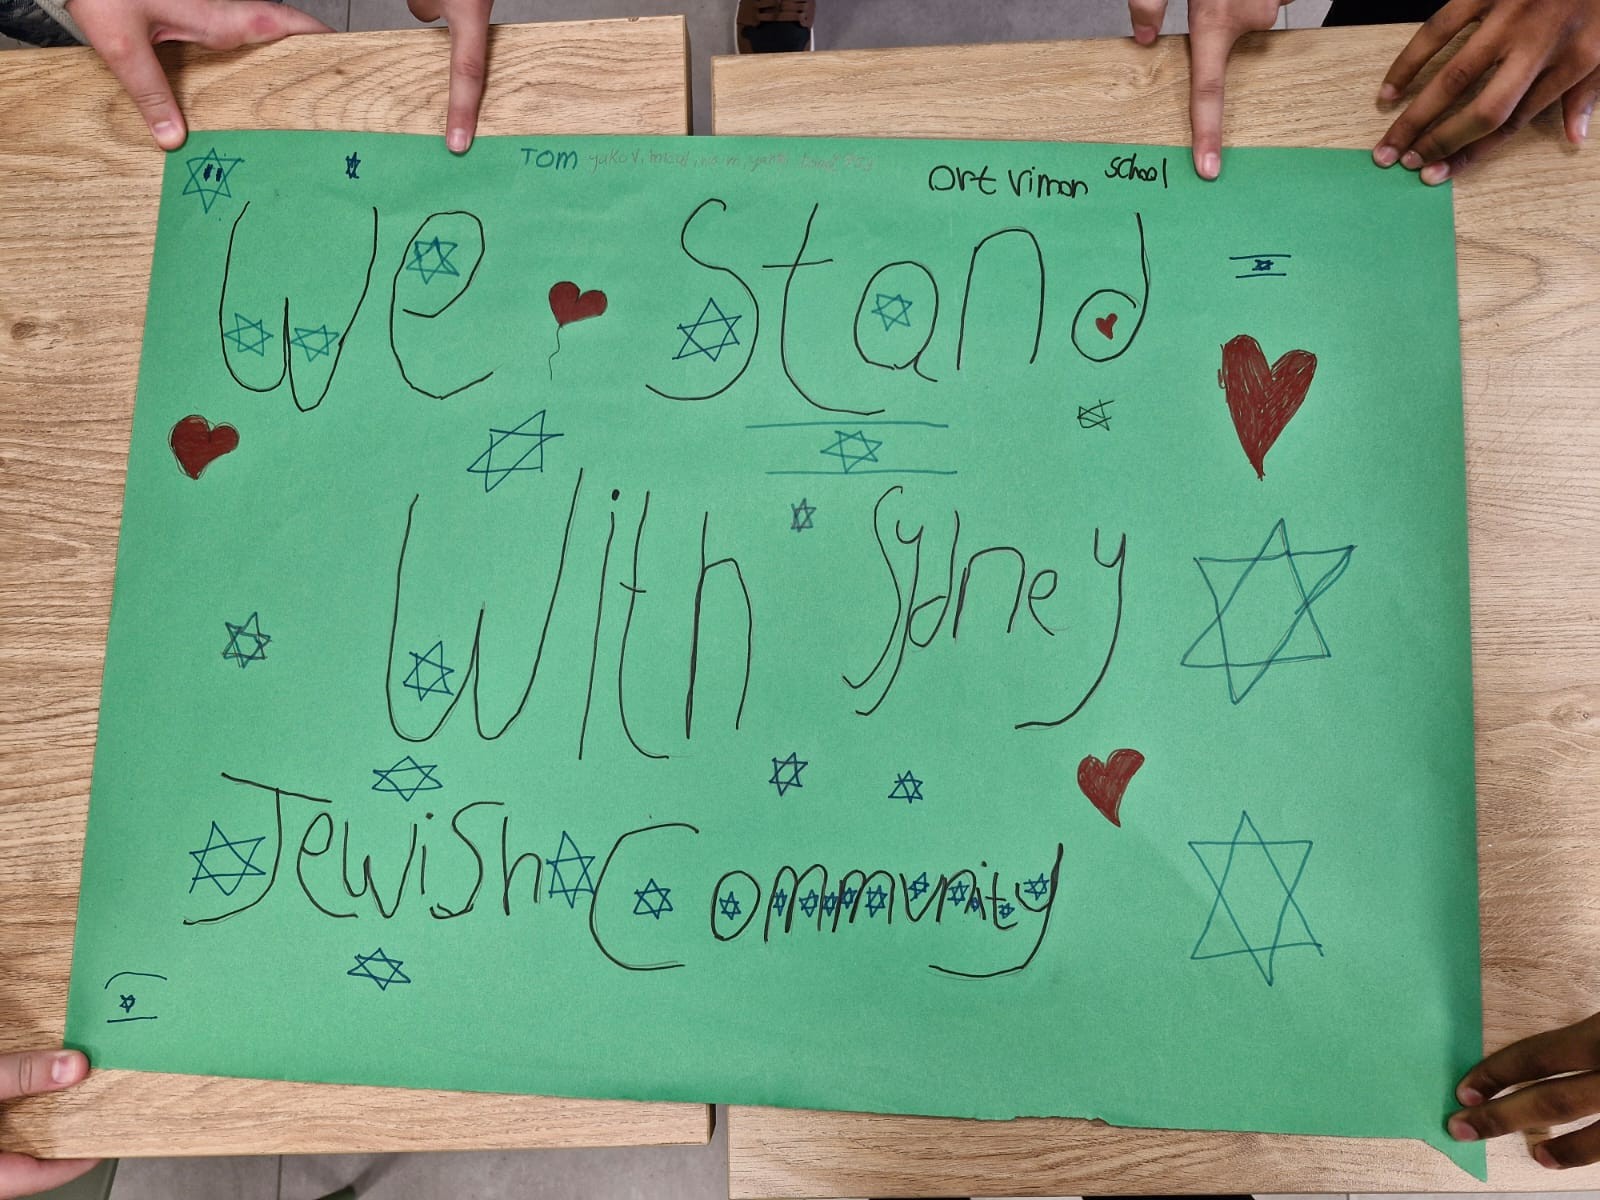 TOM yakov,
ort rimon school
We Stand
With Sydney
Jewish Community